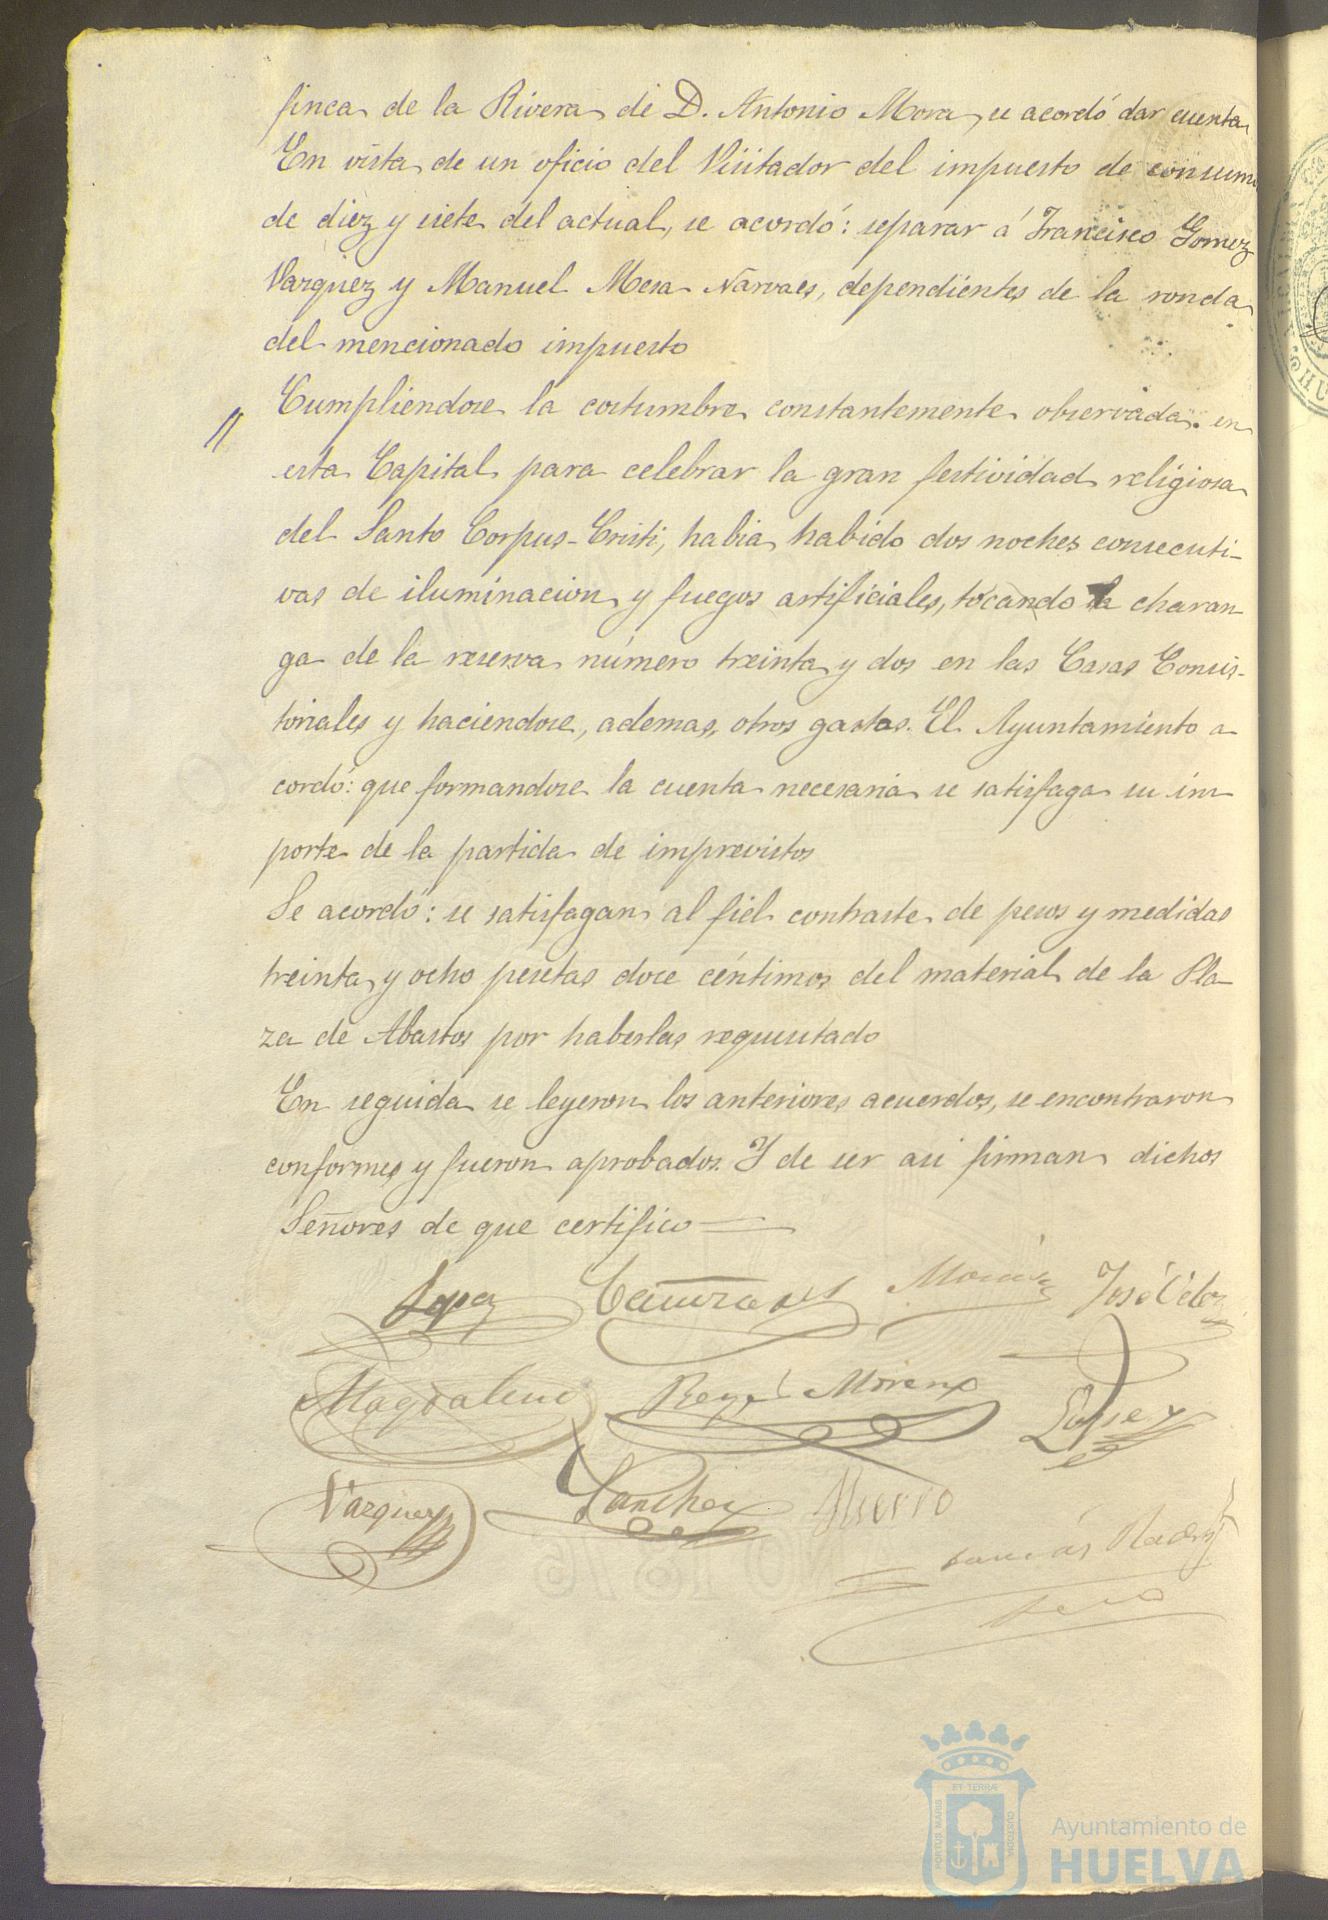 finca de la Rivera de D. Antonio Mora, se acordó dar cuenta
En vista de un oficio del Visitador del impuesto de consumo
de diez y siete del actual, se acordó: separar á Francisco Gomez
Vazquez y Manuel Mesa Narvaes, dependientes de la ronda
del mencionado impuesto
" Cumpliendose la costumbre constantemente observada en
esta Capital para celebrar la gran festividad religiosa
del Santo Corpus-Cristi, habia habido dos noches consecuti-
vas de iluminacion y fuegos artificiales, tocando la charan-
ga de la reserva número treinta y dos en las Casas Consis-
toriales y haciendose, ademas, otros gastos. El Ayuntamiento a
cordó: que formandose la cuenta necesaria se satisfaga su im
porte de la partida de imprevistos
Se acordó: se satisfagan al fiel contraste de pesos y medidas
treinta y ocho pesetas doce céntimos del material de la Pla-
za de Abastos por haberlas requisitado
En seguida se leyeron los anteriores acuerdos, se encontraron
conformes y fueron aprobados. Y de ser asi firman dichos
Señores de que certifico
Lopez José Velez
Magdaleno Moreno Lopez
Vazquez Sanchez
AÑO 1876
PORTUS MARIS ET TERRÆ CUSTODIA
Ayuntamiento de
HUELVA